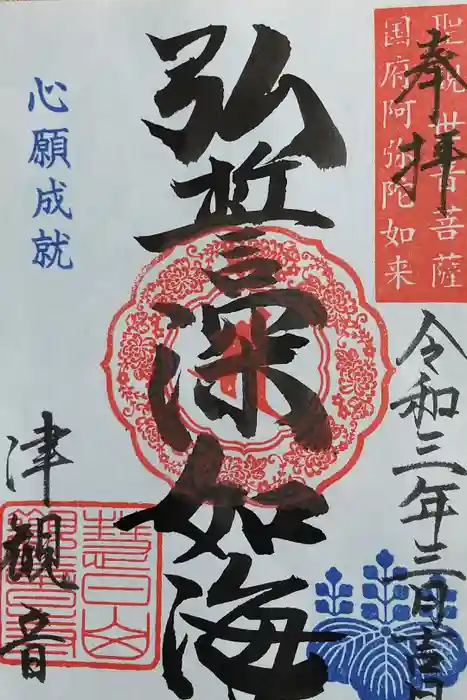 奉拝
聖観世音菩薩
国府阿弥陀如来
令和三年三月吉日
弘誓深如海
心願成就
津観音